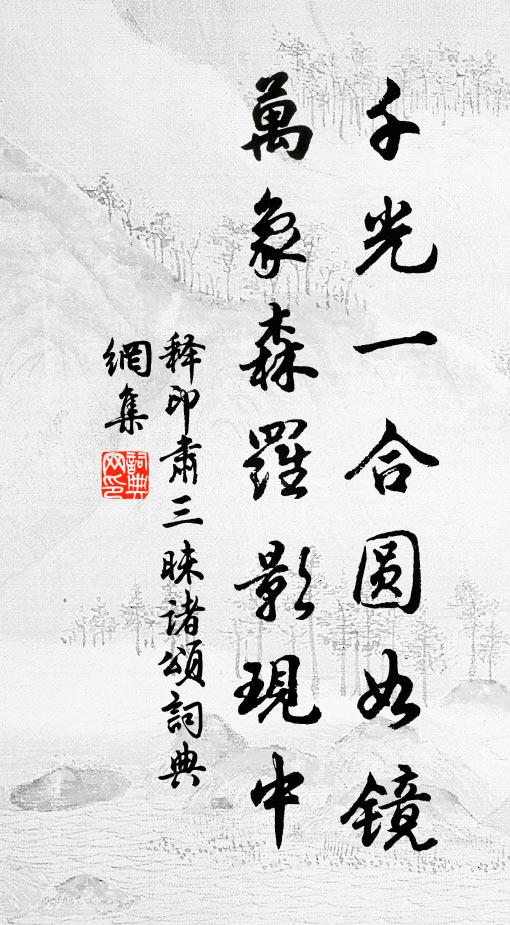 千光一合圆如镜
萬象森羅影現中
释印肃三昧诸頌詞典
網集
詞典网印